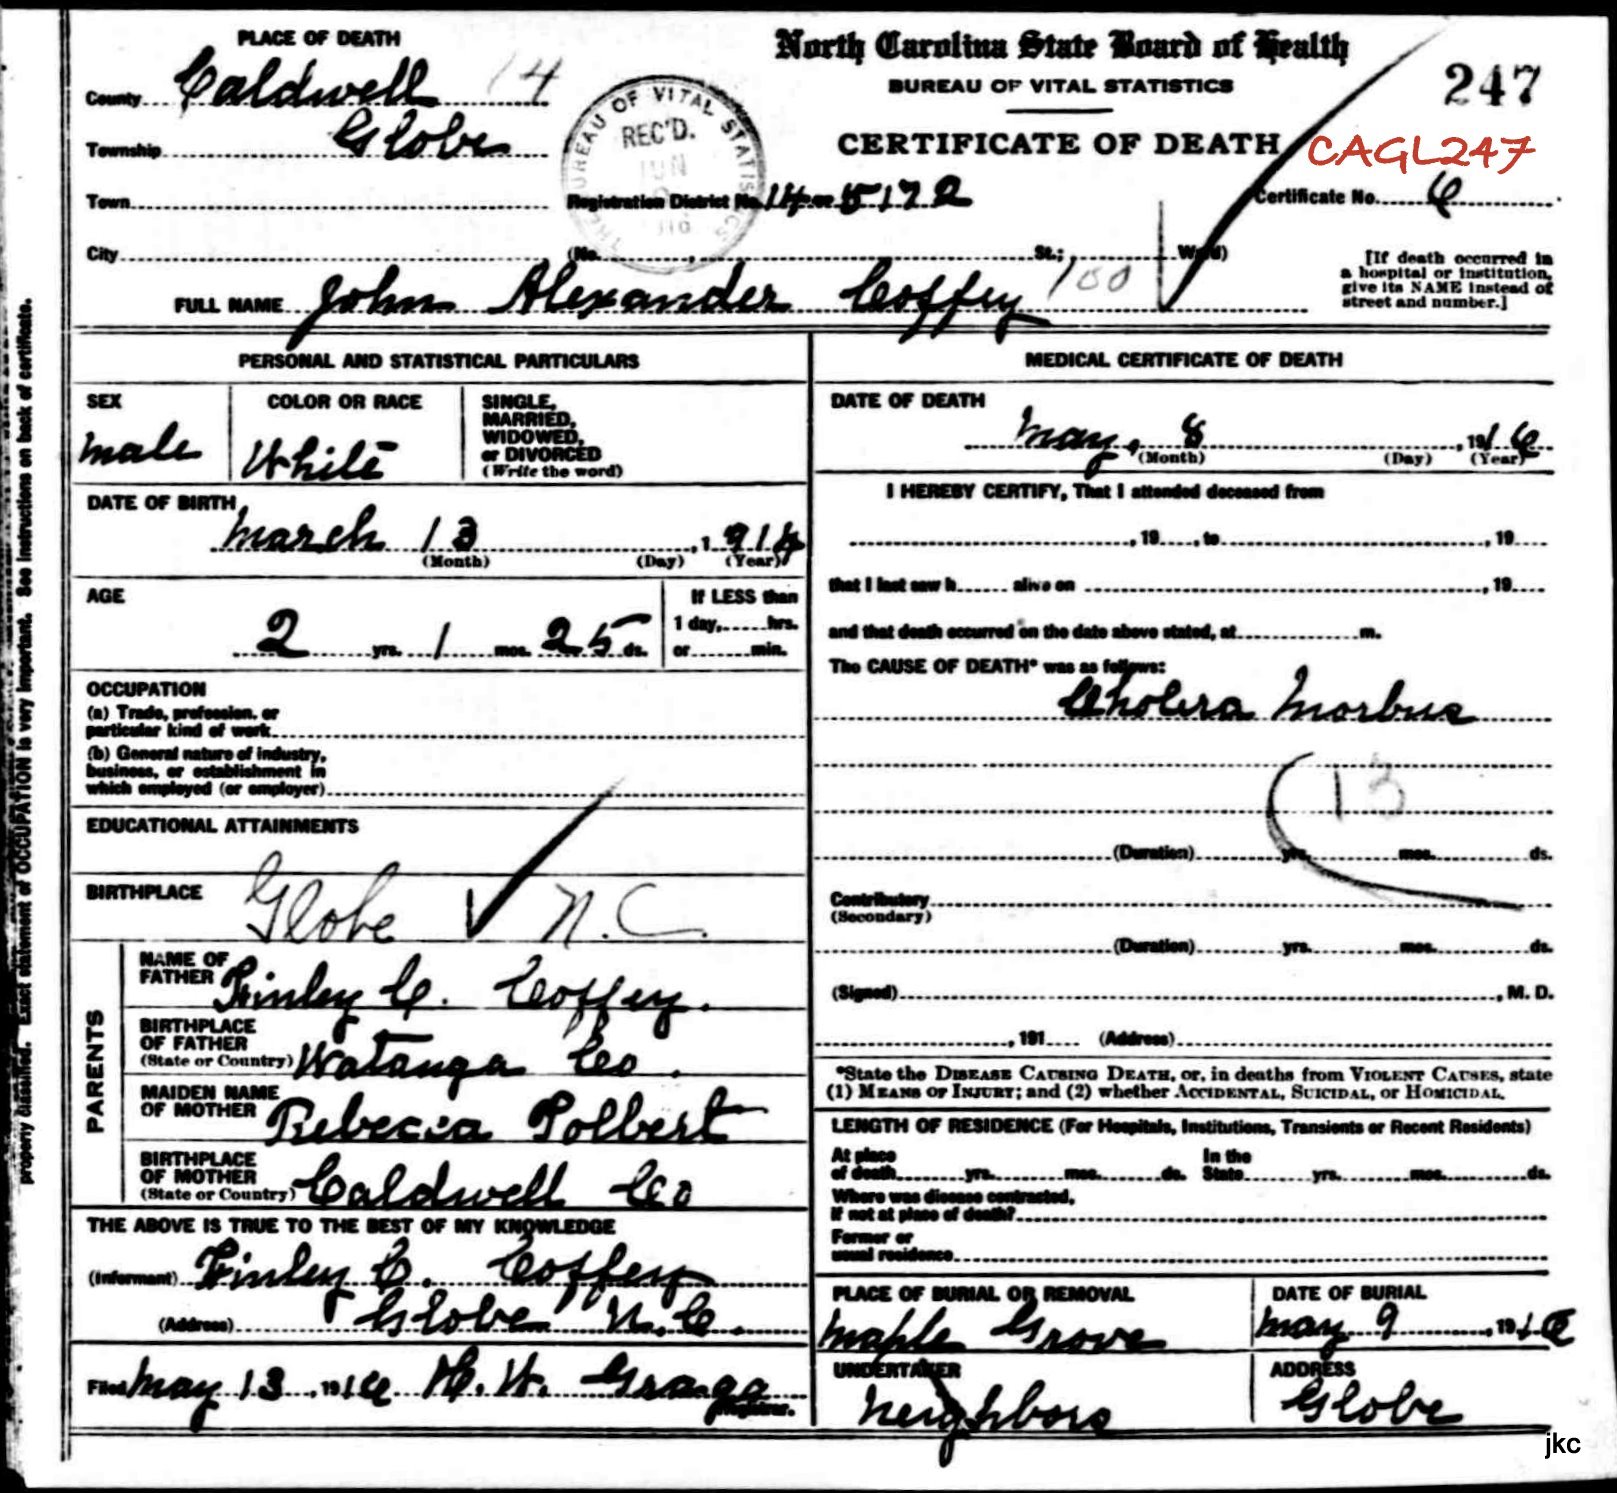 PLACE OF DEATH
County Caldwell 14
Township Globe
Town
City (No. , St.; Ward)
THE BUREAU OF VITAL STATISTICS
REC'D.
JUN
North Carolina State Board of Health
BUREAU OF VITAL STATISTICS
CERTIFICATE OF DEATH
247
CAGL247
Registration District No. 14 or 5172
Certificate No. 6
[If death occurred in
a hospital or institution,
give its NAME instead of
street and number.]
FULL NAME John Alexander Coffey 100
PERSONAL AND STATISTICAL PARTICULARS
SEX
male
COLOR OR RACE
White
SINGLE,
MARRIED,
WIDOWED,
or DIVORCED
(Write the word)
DATE OF BIRTH
March 13 , 1914
(Month) (Day) (Year)
AGE
2 yrs. 1 mos. 25 ds.
If LESS than
1 day, hrs.
or min.
OCCUPATION
(a) Trade, profession, or
particular kind of work
(b) General nature of industry,
business, or establishment in
which employed (or employer)
EDUCATIONAL ATTAINMENTS
BIRTHPLACE
Globe N.C.
PARENTS
NAME OF
FATHER Finley C. Coffey.
BIRTHPLACE
OF FATHER
(State or Country) Watauga Co.
MAIDEN NAME
OF MOTHER Rebecca Tolbert
BIRTHPLACE
OF MOTHER
(State or Country) Caldwell Co
THE ABOVE IS TRUE TO THE BEST OF MY KNOWLEDGE
(Informant) Finley C. Coffey
(Address) Globe N.C.
Filed May 13 , 1916 H. W. Gragg
Registrar.
MEDICAL CERTIFICATE OF DEATH
DATE OF DEATH
May, 8 , 1916
(Month) (Day) (Year)
I HEREBY CERTIFY, That I attended deceased from
, 19 , to , 19
that I last saw h alive on , 19
and that death occurred on the date above stated, at m.
The CAUSE OF DEATH* was as follows:
Cholera Morbus
13
(Duration) yrs. mos. ds.
Contributory
(Secondary)
(Duration) yrs. mos. ds.
(Signed) , M. D.
, 191 (Address)
*State the DISEASE CAUSING DEATH, or, in deaths from VIOLENT CAUSES, state
(1) MEANS OF INJURY; and (2) whether ACCIDENTAL, SUICIDAL, or HOMICIDAL.
LENGTH OF RESIDENCE (For Hospitals, Institutions, Transients or Recent Residents)
At place
of death yrs. mos. ds.
In the
State yrs. mos. ds.
Where was disease contracted,
if not at place of death?
Former or
usual residence
PLACE OF BURIAL OR REMOVAL
Maple Grove
DATE OF BURIAL
May 9 , 1916
UNDERTAKER
Neighbors
ADDRESS
Globe
jkc
property classified. Exact statement of OCCUPATION is very important. See instructions on back of certificate.